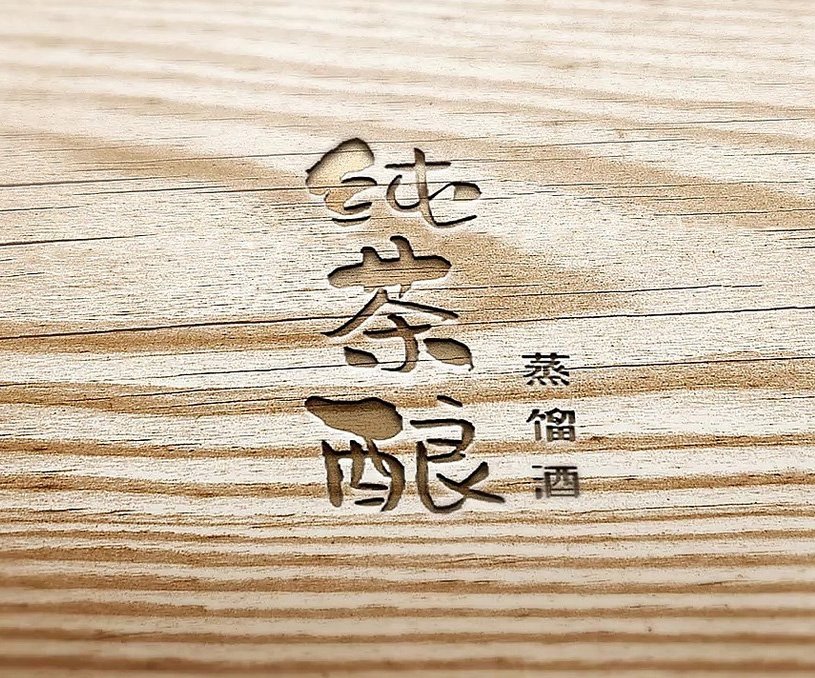 纯茶酿
蒸馏酒